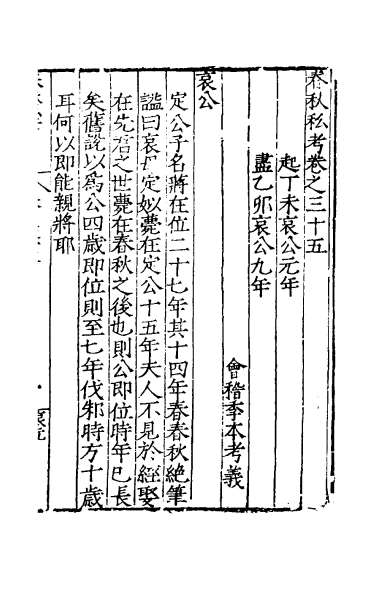 春秋私考卷之三十五
起丁未哀公元年
盡乙卯哀公九年
會稽季本考義
哀公
定公子名蔣在位二十七年其十四年春春秋絶筆
謚曰哀母定姒薨在定公十五年夫人不見於經娶
在先君之世薨在春秋之後也則公即位時年已長
矣舊說以爲公四歳即位則至七年伐邾時方十歳
耳何以即能親將耶